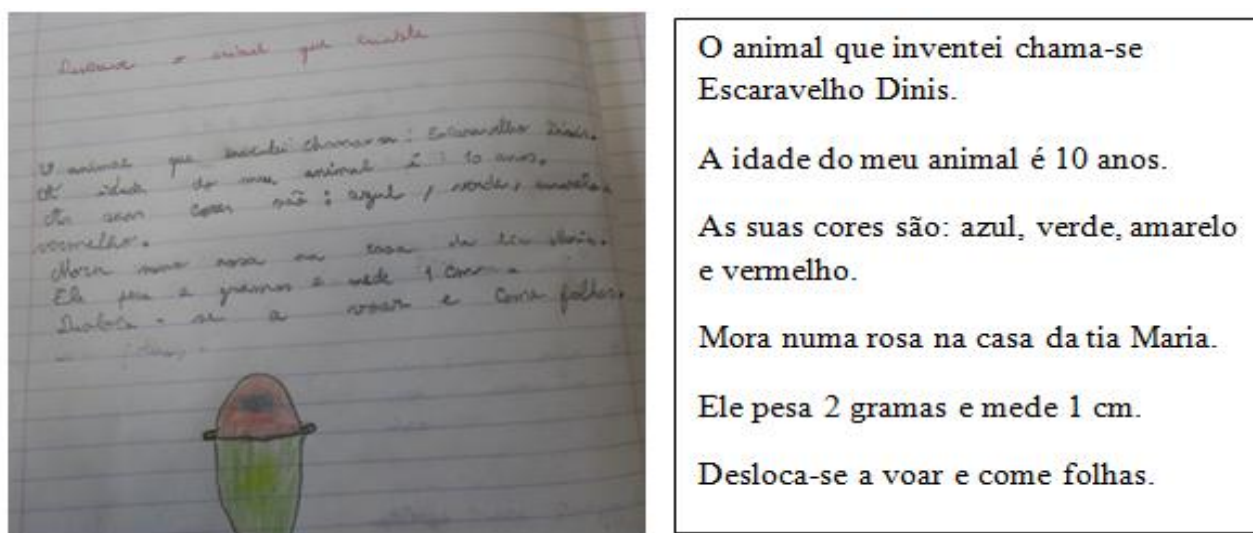 Descreve o animal que
O animal que inventei Escaravelho Dinis.
A idade do meu animal é : 10 anos.
As suas cores são : azul, verde, amarelo e
vermelho.
Mora numa rosa na casa da tia Maria.
Ele pesa 2 gramas e mede 1 cm.
Desloca-se a voar e come folhas.
O animal que inventei chama-se
Escaravelho Dinis.
A idade do meu animal é 10 anos.
As suas cores são: azul, verde, amarelo
e vermelho.
Mora numa rosa na casa da tia Maria.
Ele pesa 2 gramas e mede 1 cm.
Desloca-se a voar e come folhas.